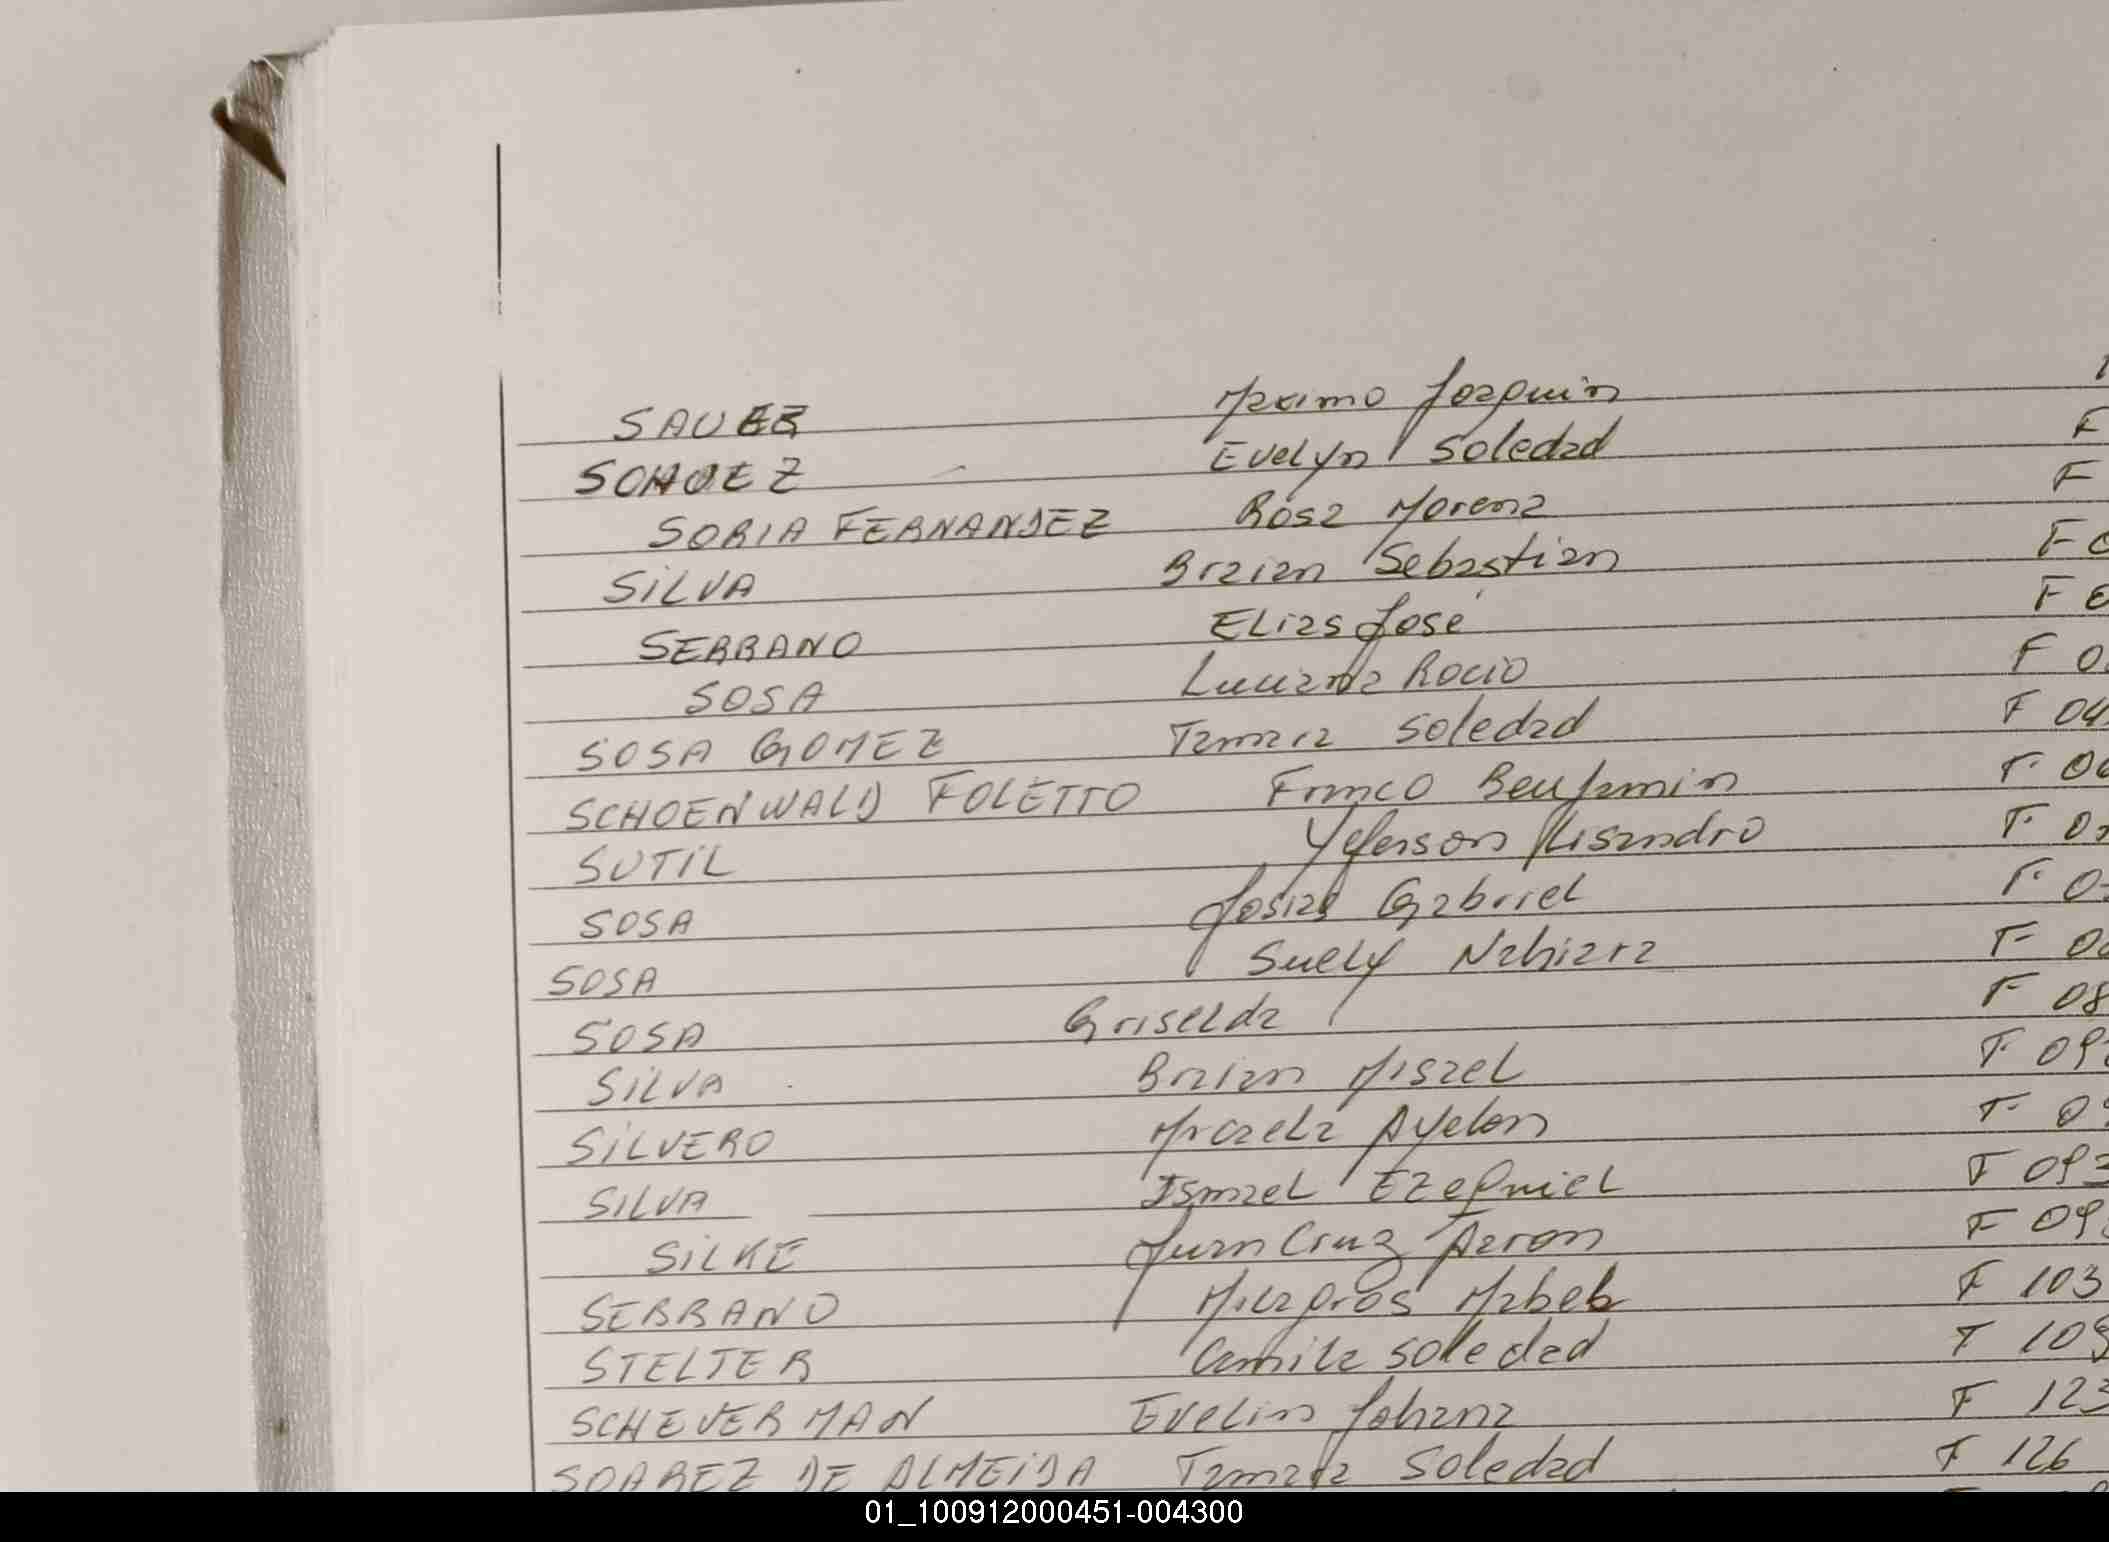 SAUER Maximo Joaquin
Evelyn Soledad F
SORIA FERNANDEZ Rosa Morena F
SILVA Braian Sebastian F 0
SERRANO Elias José F 0
SOSA Luciana Rocio F 0
SOSA GOMEZ Tamara Soledad F 04
SCHOENWALD FOLETTO Franco Benjamin F 0
SUTIL Yeferson Lisandro F 0
SOSA Josias Gabriel F 0
SOSA Suely Nahiara F 0
SOSA Griselda F 08
SILVA Braian Misael F 09
SILVERO Micaela Ayelen F 09
SILVA Ismael Ezequiel F 093
SILKE Juan Cruz Aaron F 09
SERRANO Milagros Mabel F 103
STELTER Camila Soledad F 109
SCHEVERMAN Evelin Johana F 123
SOAREZ DE ALMEIDA Tamara Soledad F 126
01_100912000451-004300